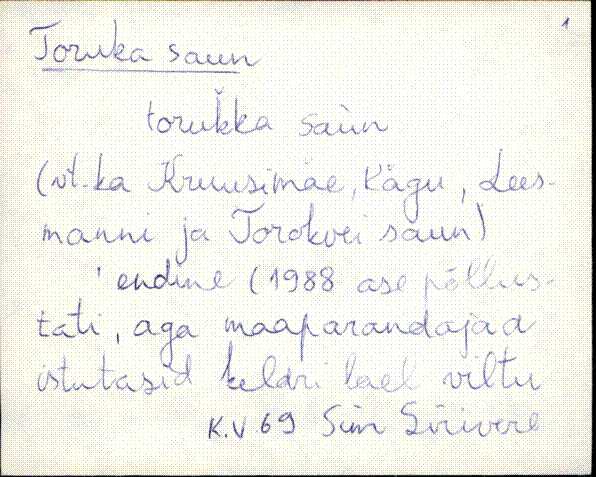 1
Toruka saun
torukka saùn
(vt. ka Kruusimäe, Kägu, Lees-
manni ja Torokvei saun)
' endine (1988 ase põllus-
tati, aga maaparandajad
istutasid keldri lael viltu
K.V 69 Siin Sirivere